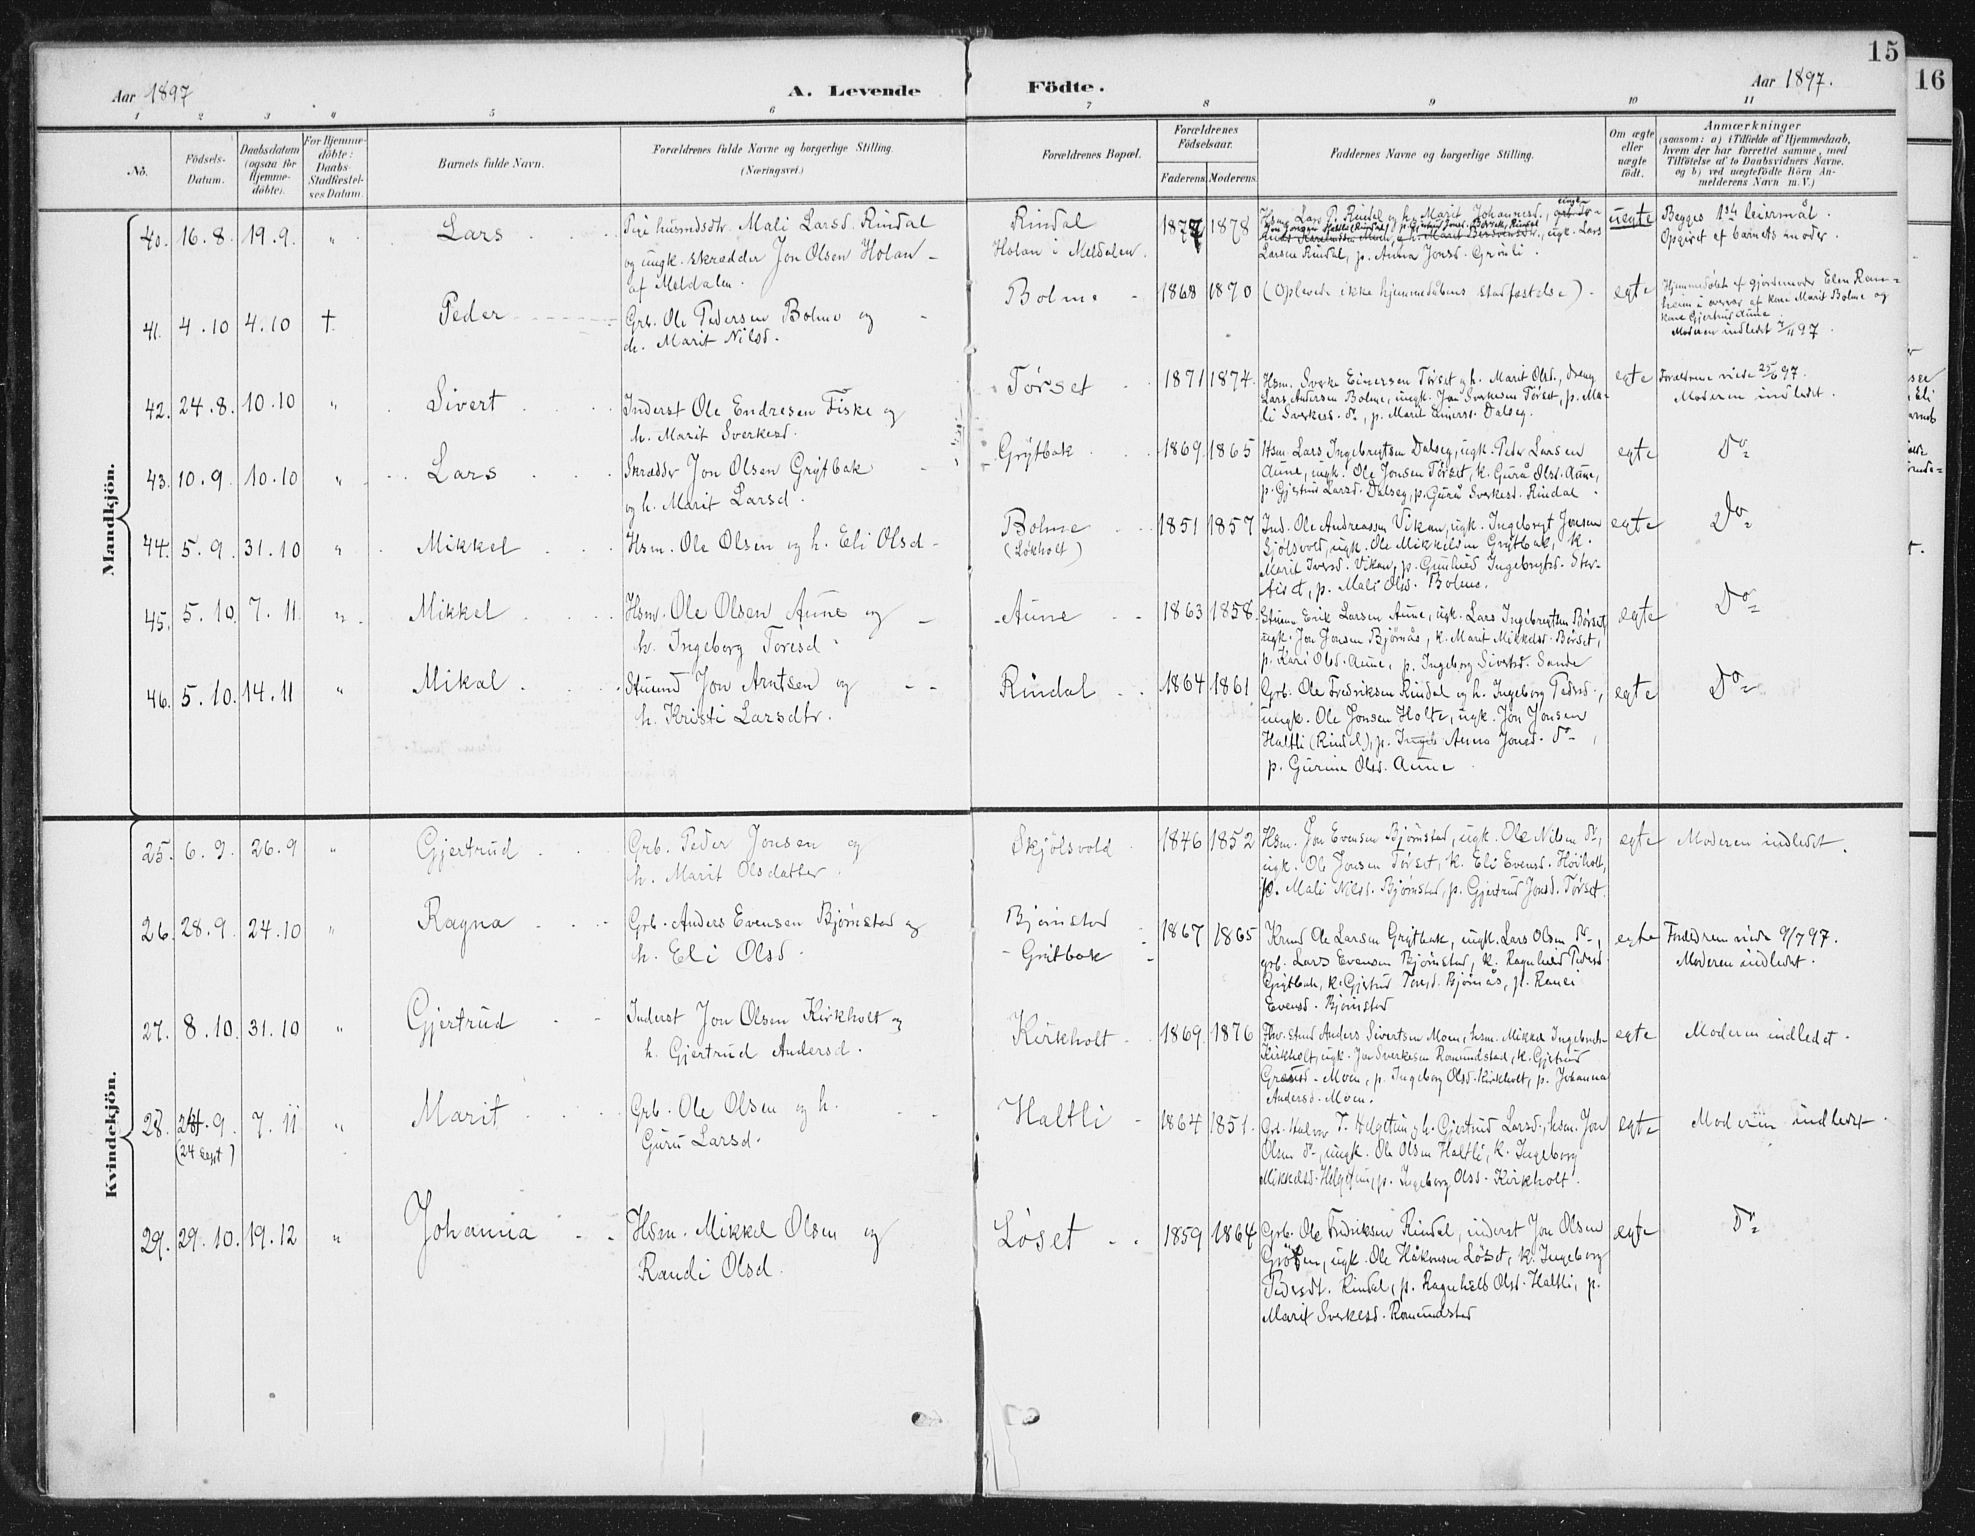 15
16
Aar 1897
A. Levende Födte.
Aar 1897.
1 2 3 4 5 6 7 8 9 10 11
No.
Födsels-Datum.
Daabsdatum (ogsaa for Hjemme-döbte).
For Hjemme-döbte: Daabs-Stadfæstel-ses Datum.
Barnets fulde Navn.
Forældrenes fulde Navne og borgerlige Stilling.
(Næringsvei.)
Forældrenes Bopæl.
Forældrenes Födselsaar.
Faderens. Moderens.
Faddernes Navne og borgerlige Stilling.
Om ægte eller uægte födt.
Anmærkninger
(saasom: a) i Tilfælde af Hjemmedaab,
hvem der har forrettet samme, med
Tilföielse af to Daabsvidners Navne,
og b) ved uægtefödte Börn An-
melderens Navn m. V.)
Mandkjön.
40. 16.8. 19.9. " Lars
Pige husmdsdtr. Mali Larsd. Rindal
og ungk. skrædder Jon Olsen Holan
af Meldalen.
Rindal
Holan i Meldalen.
1877 1878
Hsm. Lars P. Rindal og h. Marit Johannesd.,
ugk. Lars
Larsen Rindal, p. Anna Jonsd. Grönli.
uegte
Begges 1ste leiermål.
Opgivet af barnets moder.
41. 4.10 4.10 † Peder
Grb. Ole Pedersen Bolme og
h. Marit Nilsd.
Bolme
1868 1870
(Oplevede ikke hjemmedåbens stadfæstelse)
egte
Hjemmedöbt af gjordemoder Elen Ram-
heim i overvær af kone Marit Bolme og
kone Gjertrud Aune.
Moderen indledet 7/11 97.
42. 24.8. 10.10 " Sivert
Inderst Ole Endresen Fiske og
h. Marit Sverkesd.
Törset
1871 1874.
Hsm. Sverke Einersen Törset og h. Marit Olsd., dreng
Lars Andersen Bolme, ungk. Jon Sverkesen Törset, p. Ma-
li Sverkesd. do, p. Marit Einersd. Dalseg.
egte
Forældrene viede 25/6 97.
Moderen indledet.
43. 10.9. 10.10 " Lars
Skrædder Jon Olsen Grytbak
og h. Marit Larsd.
Grytbak
1869 1865
Hsm. Lars Ingebrigtsen Dalseg, ugk. Peder Larsen
Aune, ungk. Ole Jonsen Törset, k. Gurå Olsd. Aune,
p. Gjertrud Larsd. Dalseg, p. Gurå Sverkesd. Rindal.
egte
Do
44. 5.9. 31.10 " Mikkel
Hsm. Ole Olsen og h. Eli Olsd.
Bolme
(Lökholt)
1851 1857
Ind. Ole Andreassen Vikan, ugk. Ingebrigt Jonsen
Sjölsvold, ungk. Ole Mikkelsen Grytbak, k.
Marit Iversd. Vikan, p. Gunhild Ingebrigtsd. Stor-
p. Mali Olsd. Bolme.
egte
Do
45. 5.10. 7.11 " Mikkel
Hsm. Ole Olsen Aune og
h. Ingeborg Toresd.
Aune
1863 1858.
Erik Larsen Aune, ugk. Lars Ingebrigtsen Börset,
ugk. Jon Jonsen Bjørnås, k. Marit Mikkelsd. Börset,
p. Kari Olsd. Aune, p. Ingeborg Sivertsd. Sande
egte
Do
46. 5.10. 14.11 " Mikal
Stuend Jon Arntsen og
h. Kristi Larsdtr.
Rindal
1864 1861
Grb. Ole Fredriksen Rindal og h. Ingeborg Pedersd.,
ungk. Ole Jonsen Holte, ugk. Jon Jonsen
Haltli (Rindal), p. Anna Jonsd. do,
p. Gurine Olsd. Aune.
egte
Do
Kvindekjön.
25. 6.9. 26.9 " Gjertrud
Grb. Peder Jonsen og
h. Marit Olsdatter.
Skjölsvold
1846 1852
Hsm. Jon Evensen Bjørnstad, ugk. Ole Nilsen do,
ugk. Ole Jonsen Törset, k. Eli Evensd. Höiholt,
p. Mali Nilsd. Bjørnstad, p. Gjertrud Jonsd. Törset.
egte
Moderen indledet.
26. 28.9. 24.10 " Ragna
Grb. Anders Evensen Bjørnstad og
h. Eli Olsd.
Bjørnstad
Grytbak
1867 1865
Ole Larsen Grytbak, ungk. Lars Olsen do,
grb. Lars Evensen Bjørnstad, k. Ragnhild Pedersd.
Grytbak, k. Gjertrud Toresd. Bjørnås, p.
Evensd. Bjørnstad
egte
Forældrene viede 9/7 97.
Moderen indledet.
27. 8.10. 31.10 " Gjertrud
Inderst Jon Olsen Kirkholt og
h. Gjertrud Andersd.
Kirkholt
1869 1876
Anders Sivertsen Moen, hsm. Mikkel Ingebrigts.
Kirkholt, ugk. Jon Sverkesen Romundstad, k. Gjertrud
Moen, p. Ingeborg Olsd. Kirkholt, p. Johanna
Andersd. Moen.
egte
Moderen indledet.
28. 9. 7.11 " Marit
(24 sept)
Grb. Ole Olsen og h.
Guru Larsd.
Haltli
1864 1851.
Grb. Halvor T. Helgetun og h. Gjertrud Larsd., hsm. Jon
Olsen do, ungk. Ole Olsen Haltli, k. Ingeborg
Mikkelsd. Helgetun, p. Ingeborg Olsd. Kirkholt.
egte
Moderen indledet
29. 29.10. 19.12 " Johanna
Hsm. Mikkel Olsen og
Randi Olsd.
Löset
1859 1864
Grb. Ole Fredriksen Rindal, inderst Jon Olsen
ugk. Ole Håkonsen Löset, k. Ingeborg
Pedersdt. Rindal, p. Ragnhild Olsd. Haltli, p.
Marit Sverkesd. Romundstad
egte
Do